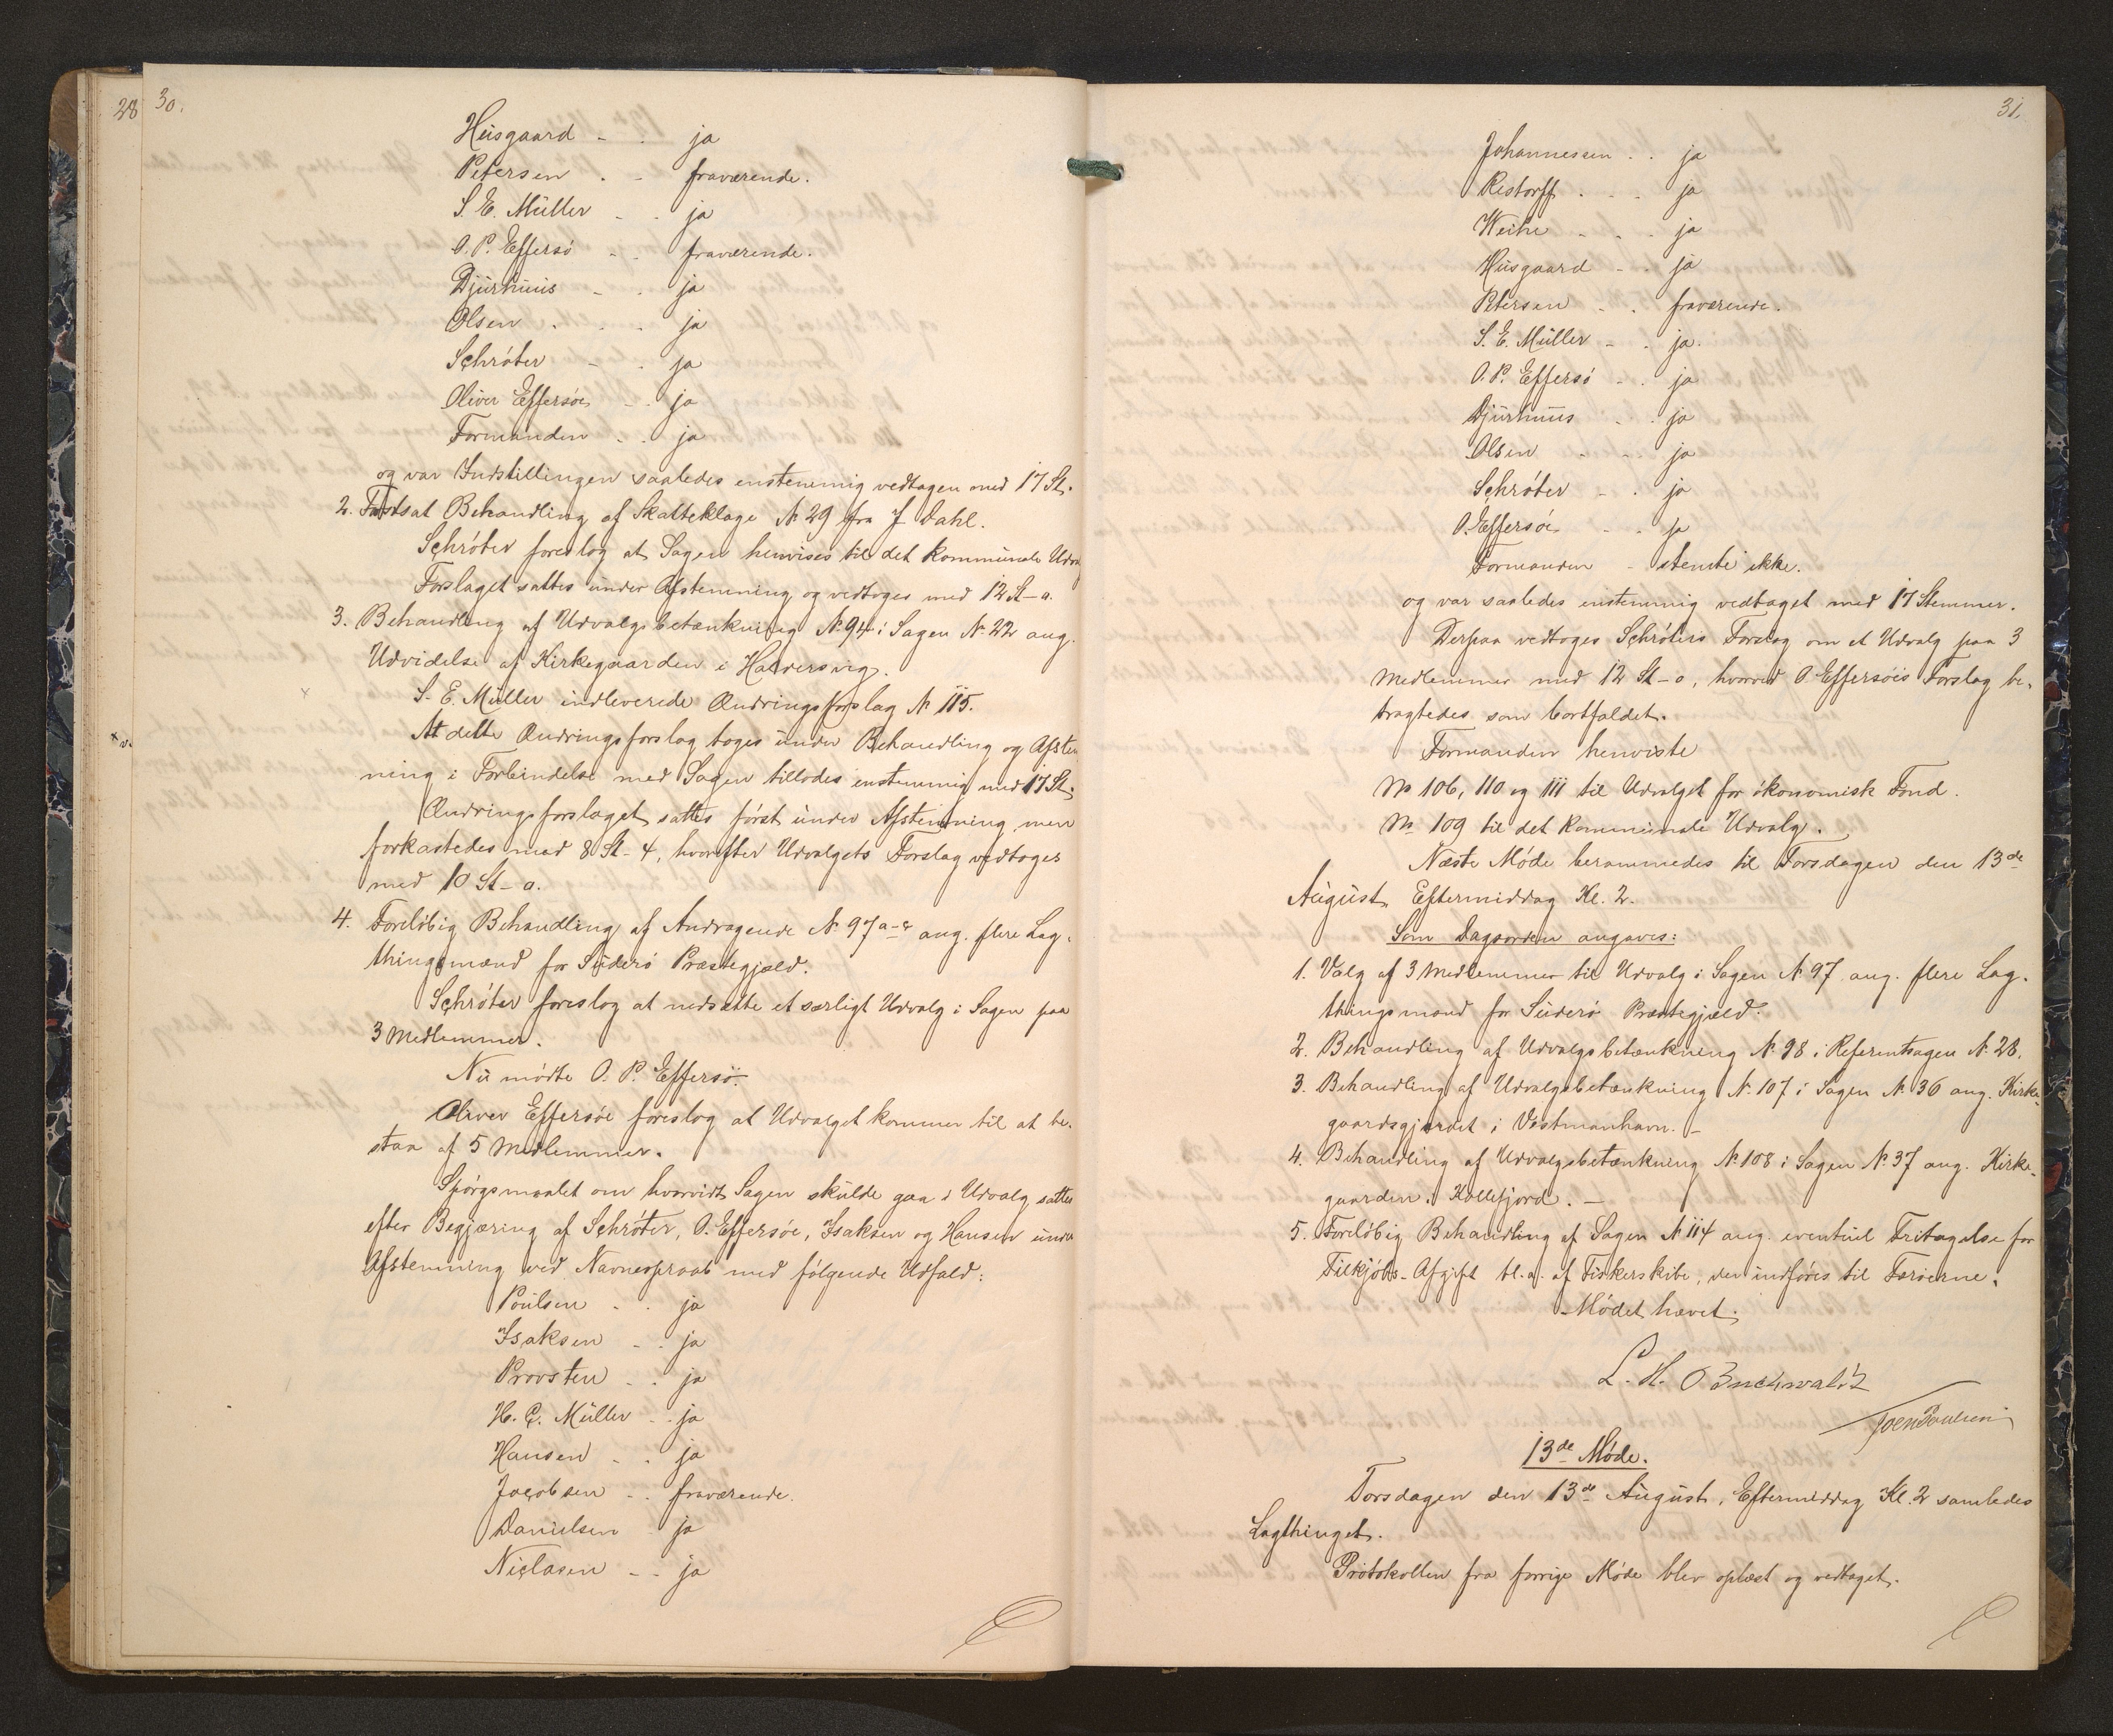 28
30.
Húsgaard - . ja
Petersen . - fraværende.
S. E. Müller - . ja
O. P. Effersö - . fraværende.
Djurhuus - . ja
Olsen . . . ja
Schröter - . ja
Oliver Effersöe - . ja
Formanden . . ja
og var Indstillingen saaledes enstemmig vedtagen med 17 St.
2. Fortsat Behandling af Skatteklage № 29 fra J Dahl.
Schröter foreslog at Sagen henvises til det kommunale Udvalg
Forslaget sattes under Afstemning og vedtoges med 12 St - o.
3. Behandling af Udvalgsbetænkning № 94 i Sagen № 22 ang.
Udvidelse af Kirkegaarden i Haldersvig.
S. E. Müller indleverede Ændringsforslag № 115.
At dette Ændringsforslag toges under Behandling og Afstem
ning i Forbindelse med Sagen tillodes enstemmig med 17 St.
Ændringsforslaget sattes först under Afstemning men
forkastedes med 8 St - 4, hvorefter Udvalgets Forslag vedtoges
med 10 St - o.
4. Forelöbig Behandling af Andragende № 97 a-e ang. flere Lag-
thingsmænd for Süderö Præstegjæld.
Schröter foreslog at nedsætte et særligt Udvalg i Sagen paa
3 Medlemmer.
Nu mödte O. P. Effersö.
Oliver Effersöe foreslog at Udvalget kommer til at be-
staa af 5 Medlemmer.
Spörgsmaalet om hvorvidt Sagen skulde gaa i Udvalg sattes
efter Begjæring af Schröter, O. Effersöe, Isaksen og Hansen under
Afstemning ved Navneopraab med fölgende Udfald:
Poulsen - . ja
Isaksen - . ja
Provsten - . ja
H. C. Müller - . ja
Hansen - . ja
Jacobsen - . fraværende.
Danielsen . ja
Niclasen - - ja
31.
Johannessen . . ja
Restorff . . . ja
Weihe - - . ja
Húsgaard - . ja
Petersen - . fraværende.
S. E. Müller - . ja.
O. P. Effersö - . ja
Djurhuus - . ja
Olsen - - . ja
Schröter - . ja
O. Effersöe - - ja
Formanden - stemte ikke.
og var saaledes enstemmig vedtaget med 17 Stemmer.
Derpaa vedtoges Schröters Forslag om et Udvalg paa 3
Medlemmer med 12 St - o, hvorved O Effersöes Forslag be-
tragtedes som bortfaldet.
Formanden henviste
№ 106, 110 og 111 til Udvalget for ökonomisk Fond.
№ 109 til det kommunale Udvalg.
Næste Möde berammedes til Torsdagen den 13de
August Eftermiddag Kl. 2.
Som Dagsorden angaves:
1. Valg af 3 Medlemmer til Udvalg i Sagen № 97 ang. flere Lag-
thingsmænd for Süderö Præstegjæld.
2. Behandling af Udvalgsbetænkning № 98 i Referentsagen № 28.
3. Behandling af Udvalgsbetænkning № 107 i Sagen № 36 ang. Kirke-
gaardsgjærdet i Vestmanhavn. -
4. Behandling af Udvalgsbetænkning № 108 i Sagen № 37 ang. Kirke-
gaarden i Kollefjord. -
5. Forelöbig Behandling af Sagen № 114 ang. eventuel Fritagelse for
Tilkjöbs-Afgift bl. a. af Fiskerskibe, der indföres til Færöerne.
Mödet hævet.
L. H. O Buchwaldt
Joen Poulsen
13de Möde.
Torsdagen den 13de August, Eftermiddag Kl. 2 samledes
Lagthinget.
Protokollen fra forrige Möde blev oplæst og vedtaget.